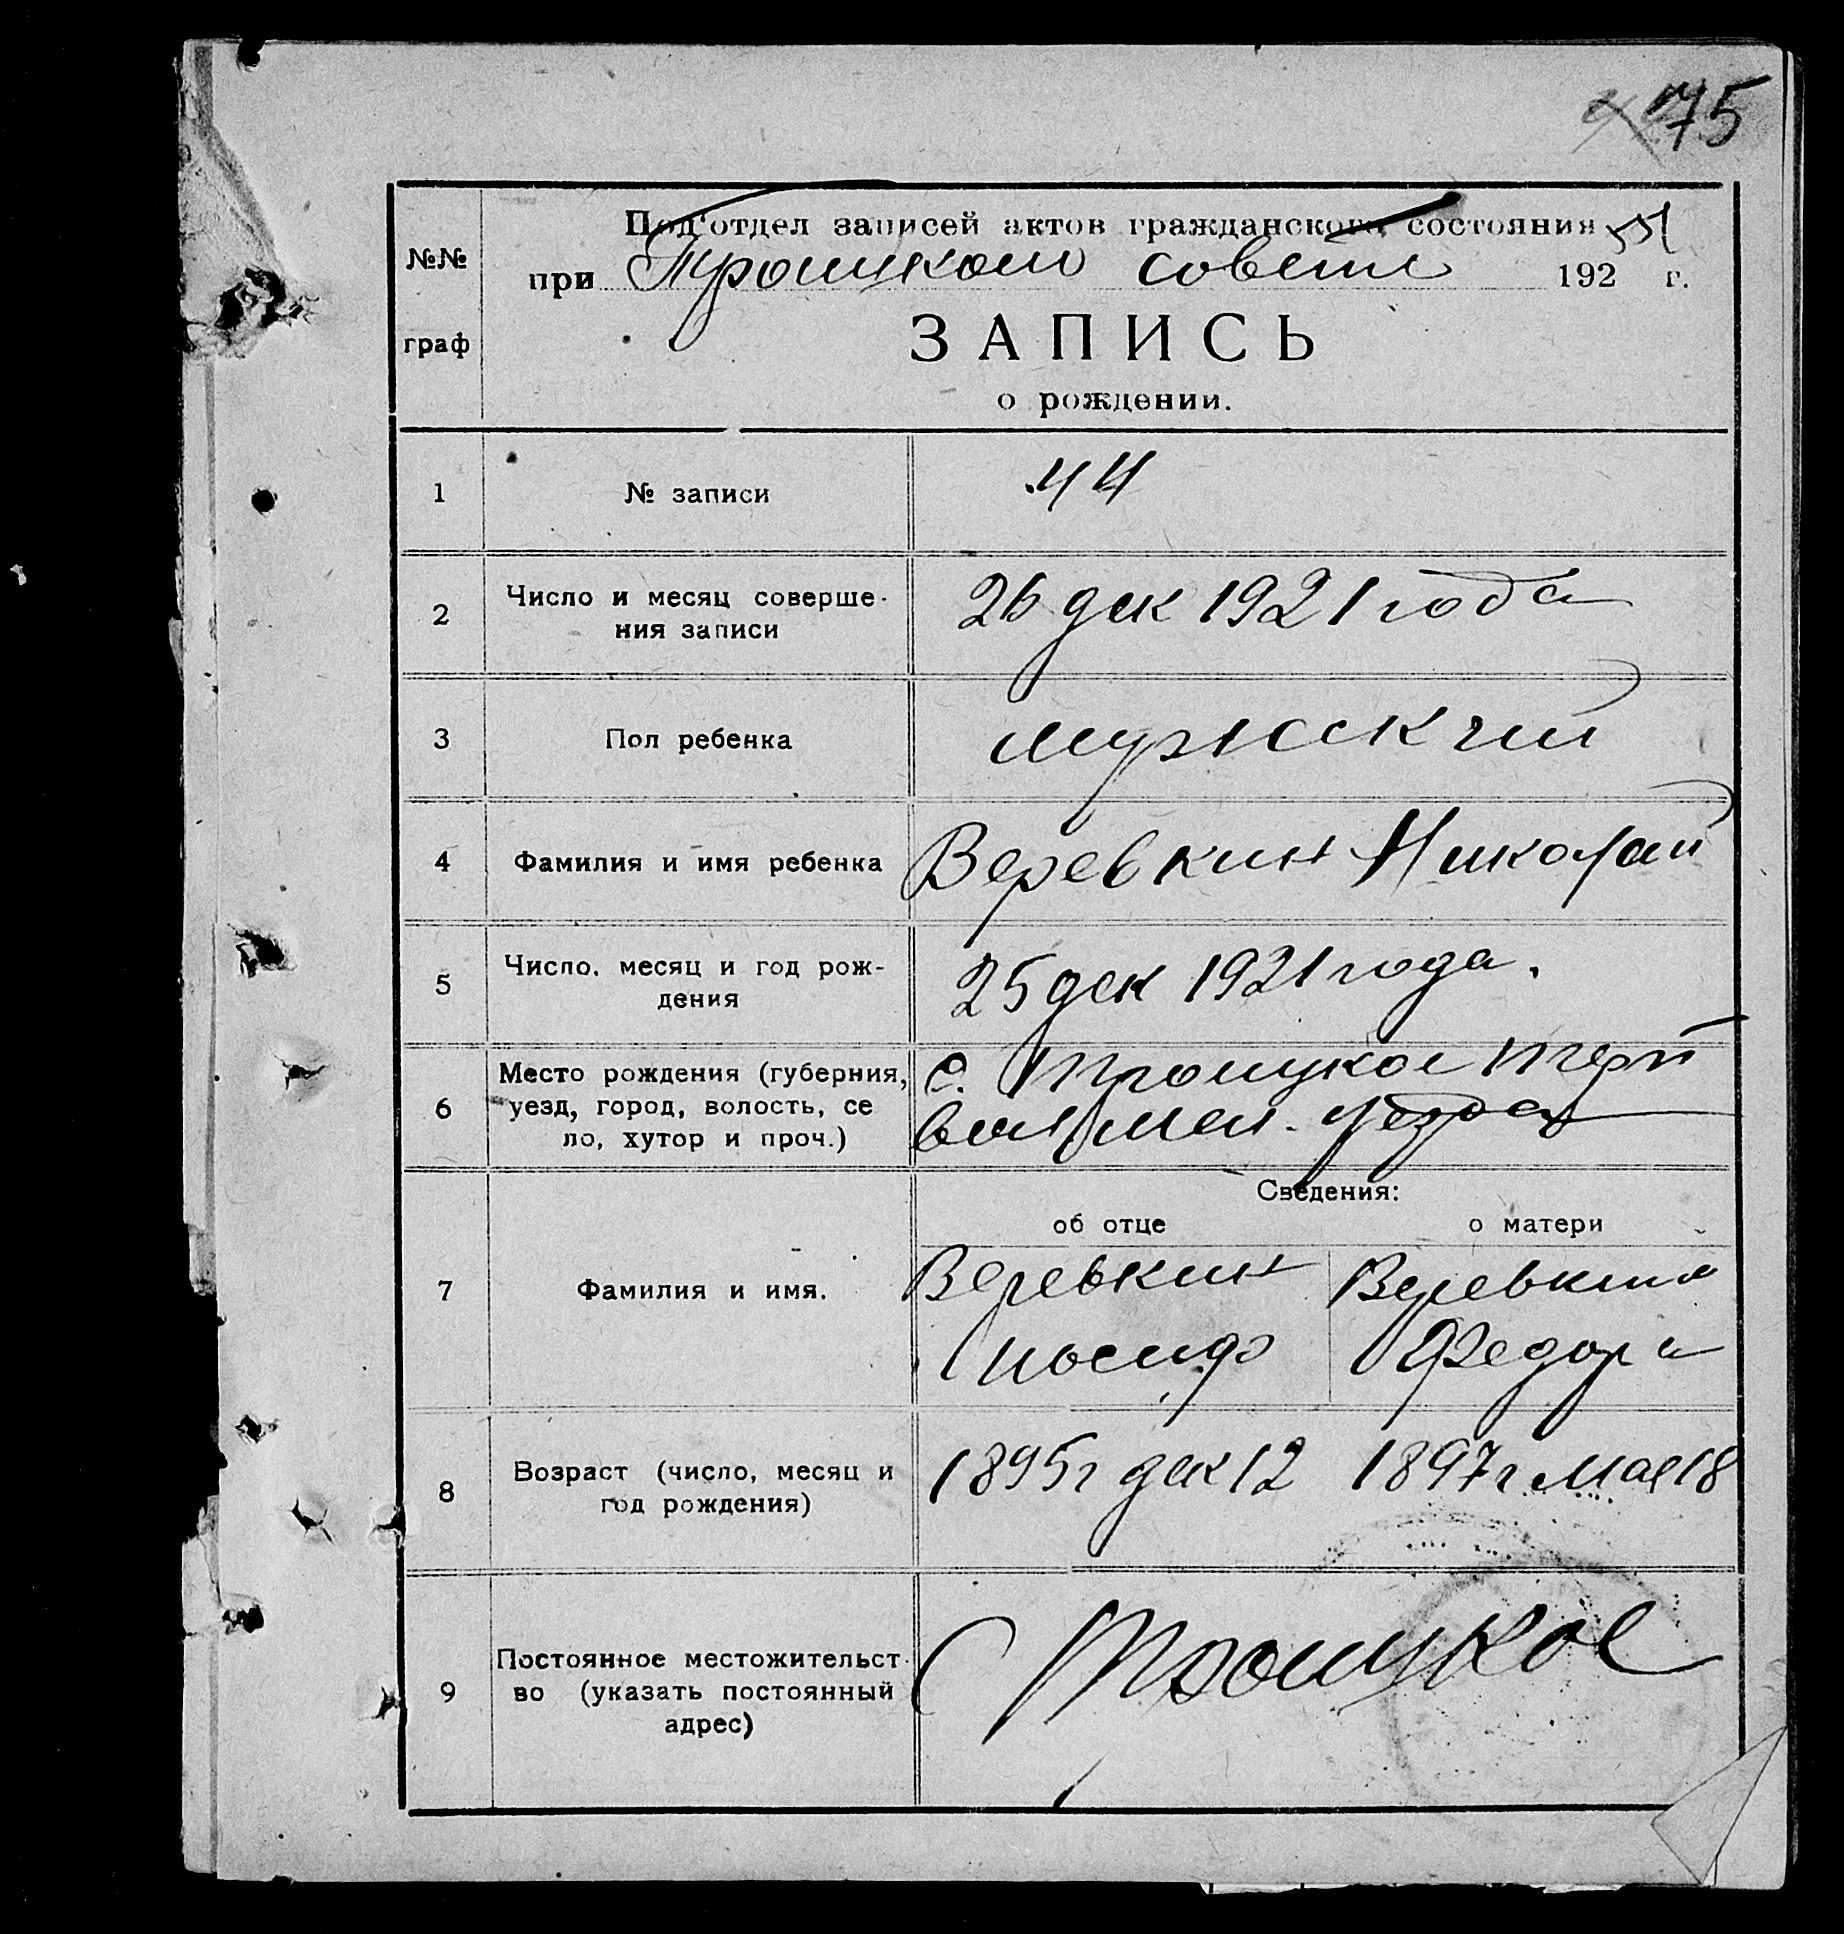 75
Под'отдел записей актов гражданского состояния
№№
при Троицком совете 192 г.
граф
ЗАПИСЬ
о рождении.
1 № записи 44
2 Число и месяц соверше-
ния записи
26 дек 1921 года
3 Пол ребенка мужский
4 Фамилия и имя ребенка Веревкин Николай
5 Число, месяц и год рож-
дения
25 дек 1921 года.
6 Место рождения (губерния,
уезд, город, волость, се
ло, хутор и проч.)
с. Троицкое
вол мел. уезда
Сведения:
об отце о матери
7 Фамилия и имя.
Веревкин Веревкина
Иосиф Федора
8 Возраст (число, месяц и
год рождения)
1895г дек 12 1897г мая 18
9 Постоянное местожительст-
во (указать постоянный
адрес)
с Троицкое